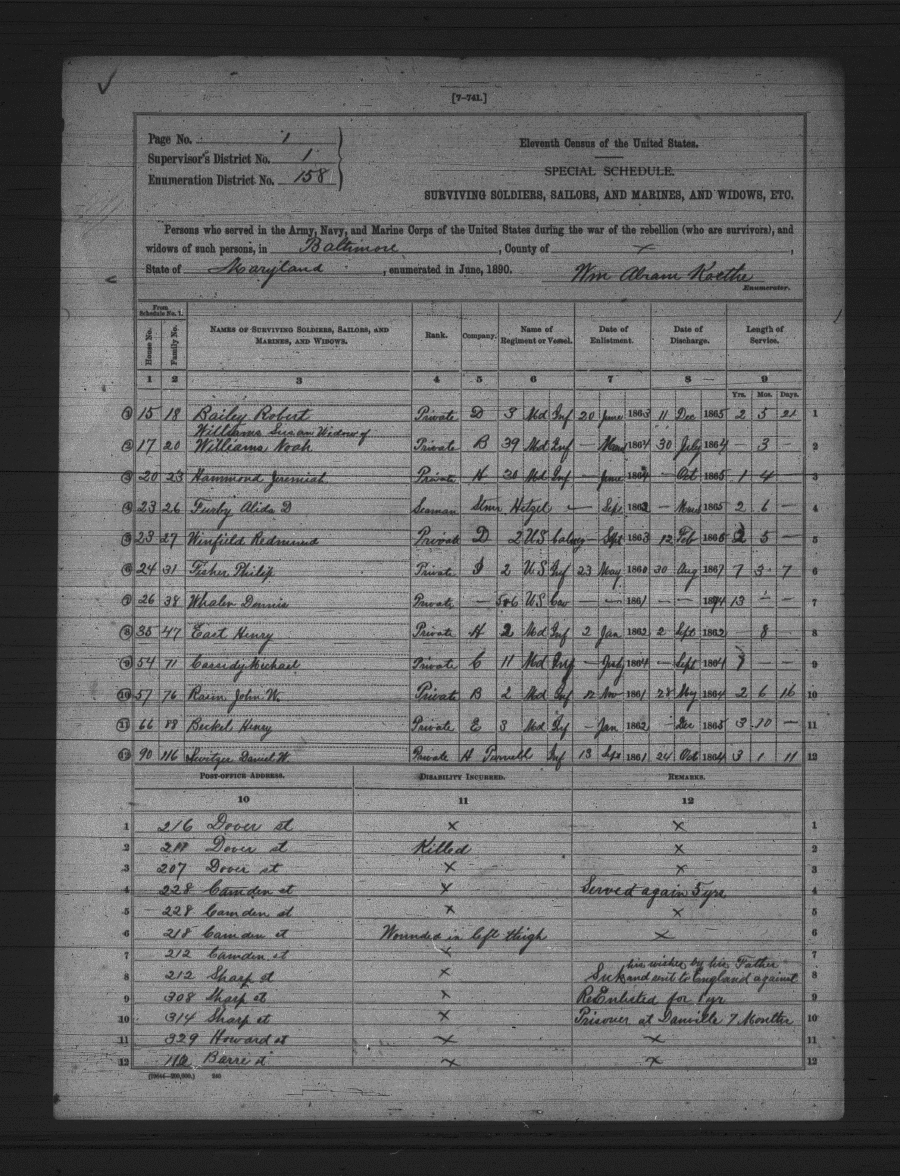 [7-741.]
Page No. 1
Supervisor's District No. 1
Enumeration District No. 158
Eleventh Census of the United States.
SPECIAL SCHEDULE.
SURVIVING SOLDIERS, SAILORS, AND MARINES, AND WIDOWS, ETC.
Persons who served in the Army, Navy, and Marine Corps of the United States during the war of the rebellion (who are survivors), and
widows of such persons, in Baltimore, County of x,
State of Maryland, enumerated in June, 1890. Wm Abram Koethe
Enumerator.
From Schedule No. 1.
House No. Family No. Names of Surviving Soldiers, Sailors, and Marines, and Widows. Rank. Company. Name of Regiment or Vessel. Date of Enlistment. Date of Discharge. Length of Service.
1 2 3 4 5 6 7 8 9
Yrs. Mos. Days.
1 15 18 Bailey Robert Private D 3 Md Inf 20 June 1863 11 Dec 1865 2 5 21 1
Williams Susan Widow of
2 17 20 Williams Noah Private B 39 Md Inf — 1864 30 July 1864 — 3 — 2
3 20 23 Hammond Jeremiah Private H 30 Md Inf — June 1864 — Oct 1865 1 4 — 3
4 23 26 Furby Alida D Seaman Stmr Hetzel — Sept 1862 — 1865 2 6 — 4
5 23 27 Winfield Redmund Private D 2 US — Sept 1863 12 Feb 1866 2 5 — 5
6 24 31 Fisher Philip Private I 2 U.S Inf 23 May 1860 30 Aug 1867 7 3 7 6
7 26 38 Whalen Dennis Private — 5&6 US Cav — — 1861 — — 1874 13 — — 7
8 35 47 East Henry Private H 2 Md Inf 2 Jan 1862 2 Sept 1862 — 8 — 8
9 54 71 Cassidy Michael Private C 11 Md Inf — 1864 — Sept 1864 — — 9
10 57 76 John W. Private B 2 Md Inf 12 Nov 1861 28 May 1864 2 6 16 10
11 66 88 Beckel Henry Private E 3 Md Inf — Jan 1862 — Dec 1865 3 10 — 11
12 90 116 Switzer Daniel W. Private H Purnell Inf 13 Sept 1861 24 Oct 1864 3 1 11 12
Post-office Address. Disability Incurred. Remarks.
10 11 12
1 216 Dover st x x 1
2 Dover st Killed x 2
3 207 Dover st x x 3
4 228 Camden st x Served again 5 yrs 4
5 228 Camden st x x 5
6 218 Camden st Wounded in left thigh x 6
7 212 Camden st x 7
his wishes by his Father
8 212 Sharp st x Sick and sent to England against 8
9 308 Sharp st x ReEnlisted for 1 yr 9
10 314 Sharp st x Prisoner at Danville 7 Months 10
11 329 Howard st x x 11
12 Barre st x x 12